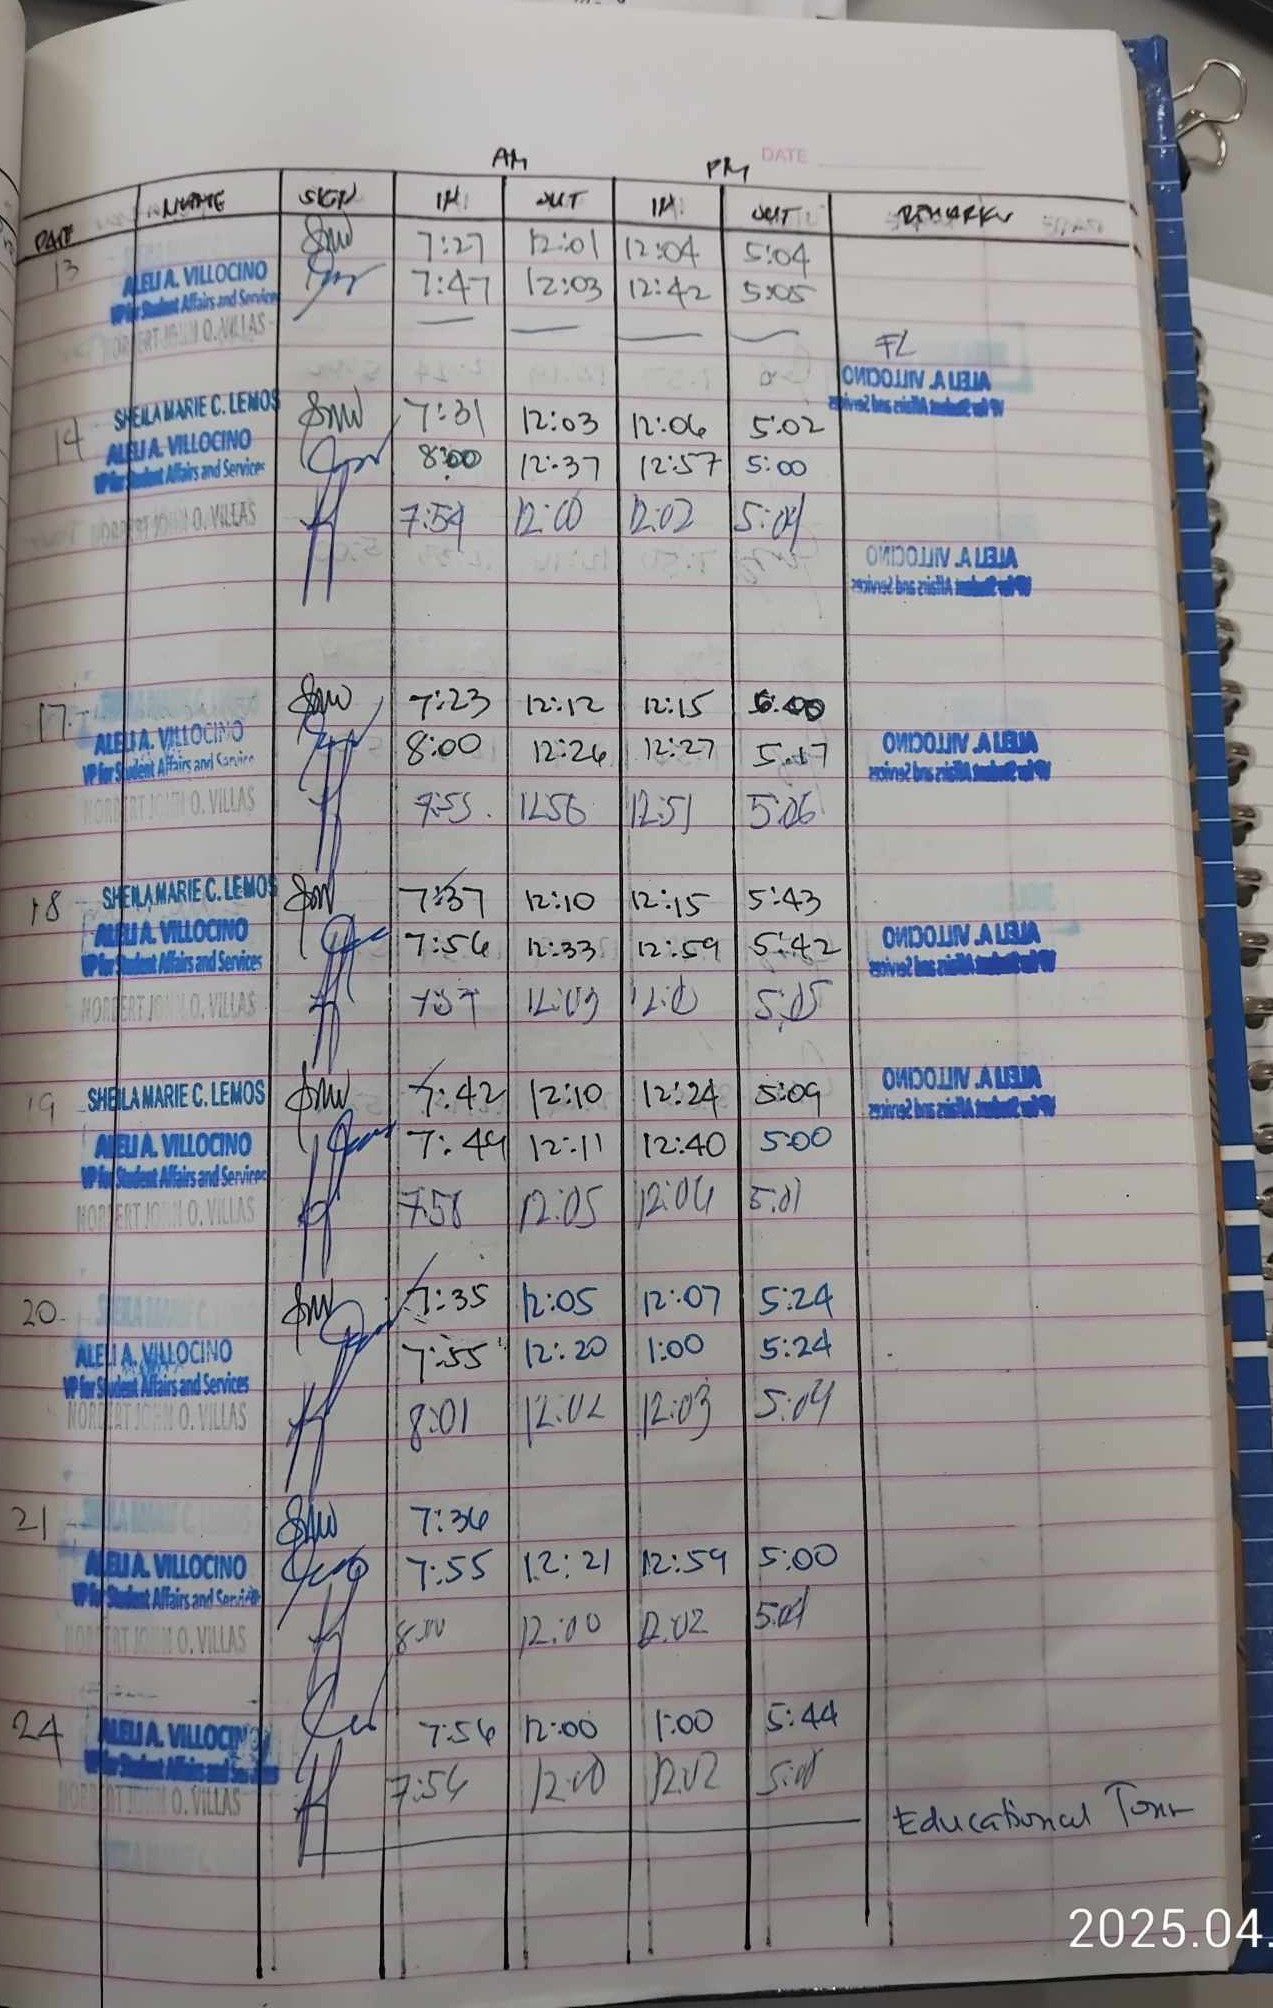 DATE
AM PM
DATE NAME SIGN IN OUT IN OUT REMARKS
13 7:27 12:01 12:04 5:04
ALELI A. VILLOCINO 7:47 12:03 12:42 5:05
VP for Student Affairs and Services
NORBERT JOHN O. VILLAS
FL
ALELI A. VILLOCINO
VP for Student Affairs and Services
14 SHEILA MARIE C. LEMOS 7:31 12:03 12:06 5:02
ALELI A. VILLOCINO 8:00 12:37 12:57 5:00
VP for Student Affairs and Services
NORBERT JOHN O. VILLAS 7:54 12:00 12:02 5:04
ALELI A. VILLOCINO
VP for Student Affairs and Services
17 7:23 12:12 12:15 5:00
ALELI A. VILLOCINO 8:00 12:26 12:27 5:17 ALELI A. VILLOCINO
VP for Student Affairs and Service VP for Student Affairs and Services
NORBERT JOHN O. VILLAS 12:51 5:06
18 SHEILA MARIE C. LEMOS 7:37 12:10 12:15 5:43
ALELI A. VILLOCINO 7:56 12:33 12:59 5:42 ALELI A. VILLOCINO
VP for Student Affairs and Services VP for Student Affairs and Services
NORBERT JOHN O. VILLAS 12:03 5:05
19 SHEILA MARIE C. LEMOS 7:42 12:10 12:24 5:09 ALELI A. VILLOCINO
VP for Student Affairs and Services
ALELI A. VILLOCINO 7:49 12:11 12:40 5:00
VP for Student Affairs and Services
NORBERT JOHN O. VILLAS 7:58 12:05 12:06 5:01
20 SHEILA MARIE C. 7:35 12:05 12:07 5:24
ALELI A. VILLOCINO 7:55 12:20 1:00 5:24
VP for Student Affairs and Services
NORBERT JOHN O. VILLAS 8:01 12:02 12:03 5:04
21 7:36
ALELI A. VILLOCINO 7:55 12:21 12:59 5:00
VP for Student Affairs and Services
NORBERT JOHN O. VILLAS 8:00 12:00 12:02 5:01
24 ALELI A. VILLOCINO 7:56 12:00 1:00 5:44
VP for Student Affairs and Services
NORBERT JOHN O. VILLAS 7:56 12:00 12:02
Educational Tour
2025.04.